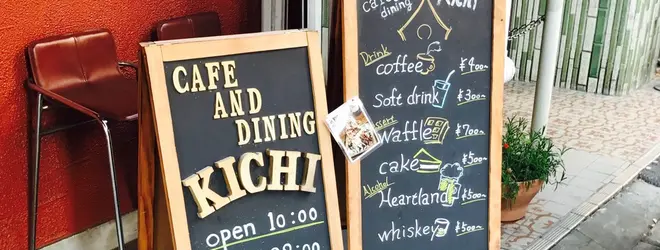 CAFE
AND
DINING
KICHI
open 10:00
cafe
dining
Drink
coffee ¥400~
Soft drink ¥300~
waffle ¥700~
cake ¥500~
Alcohol
Heartland ¥500~
whiskey ¥500~